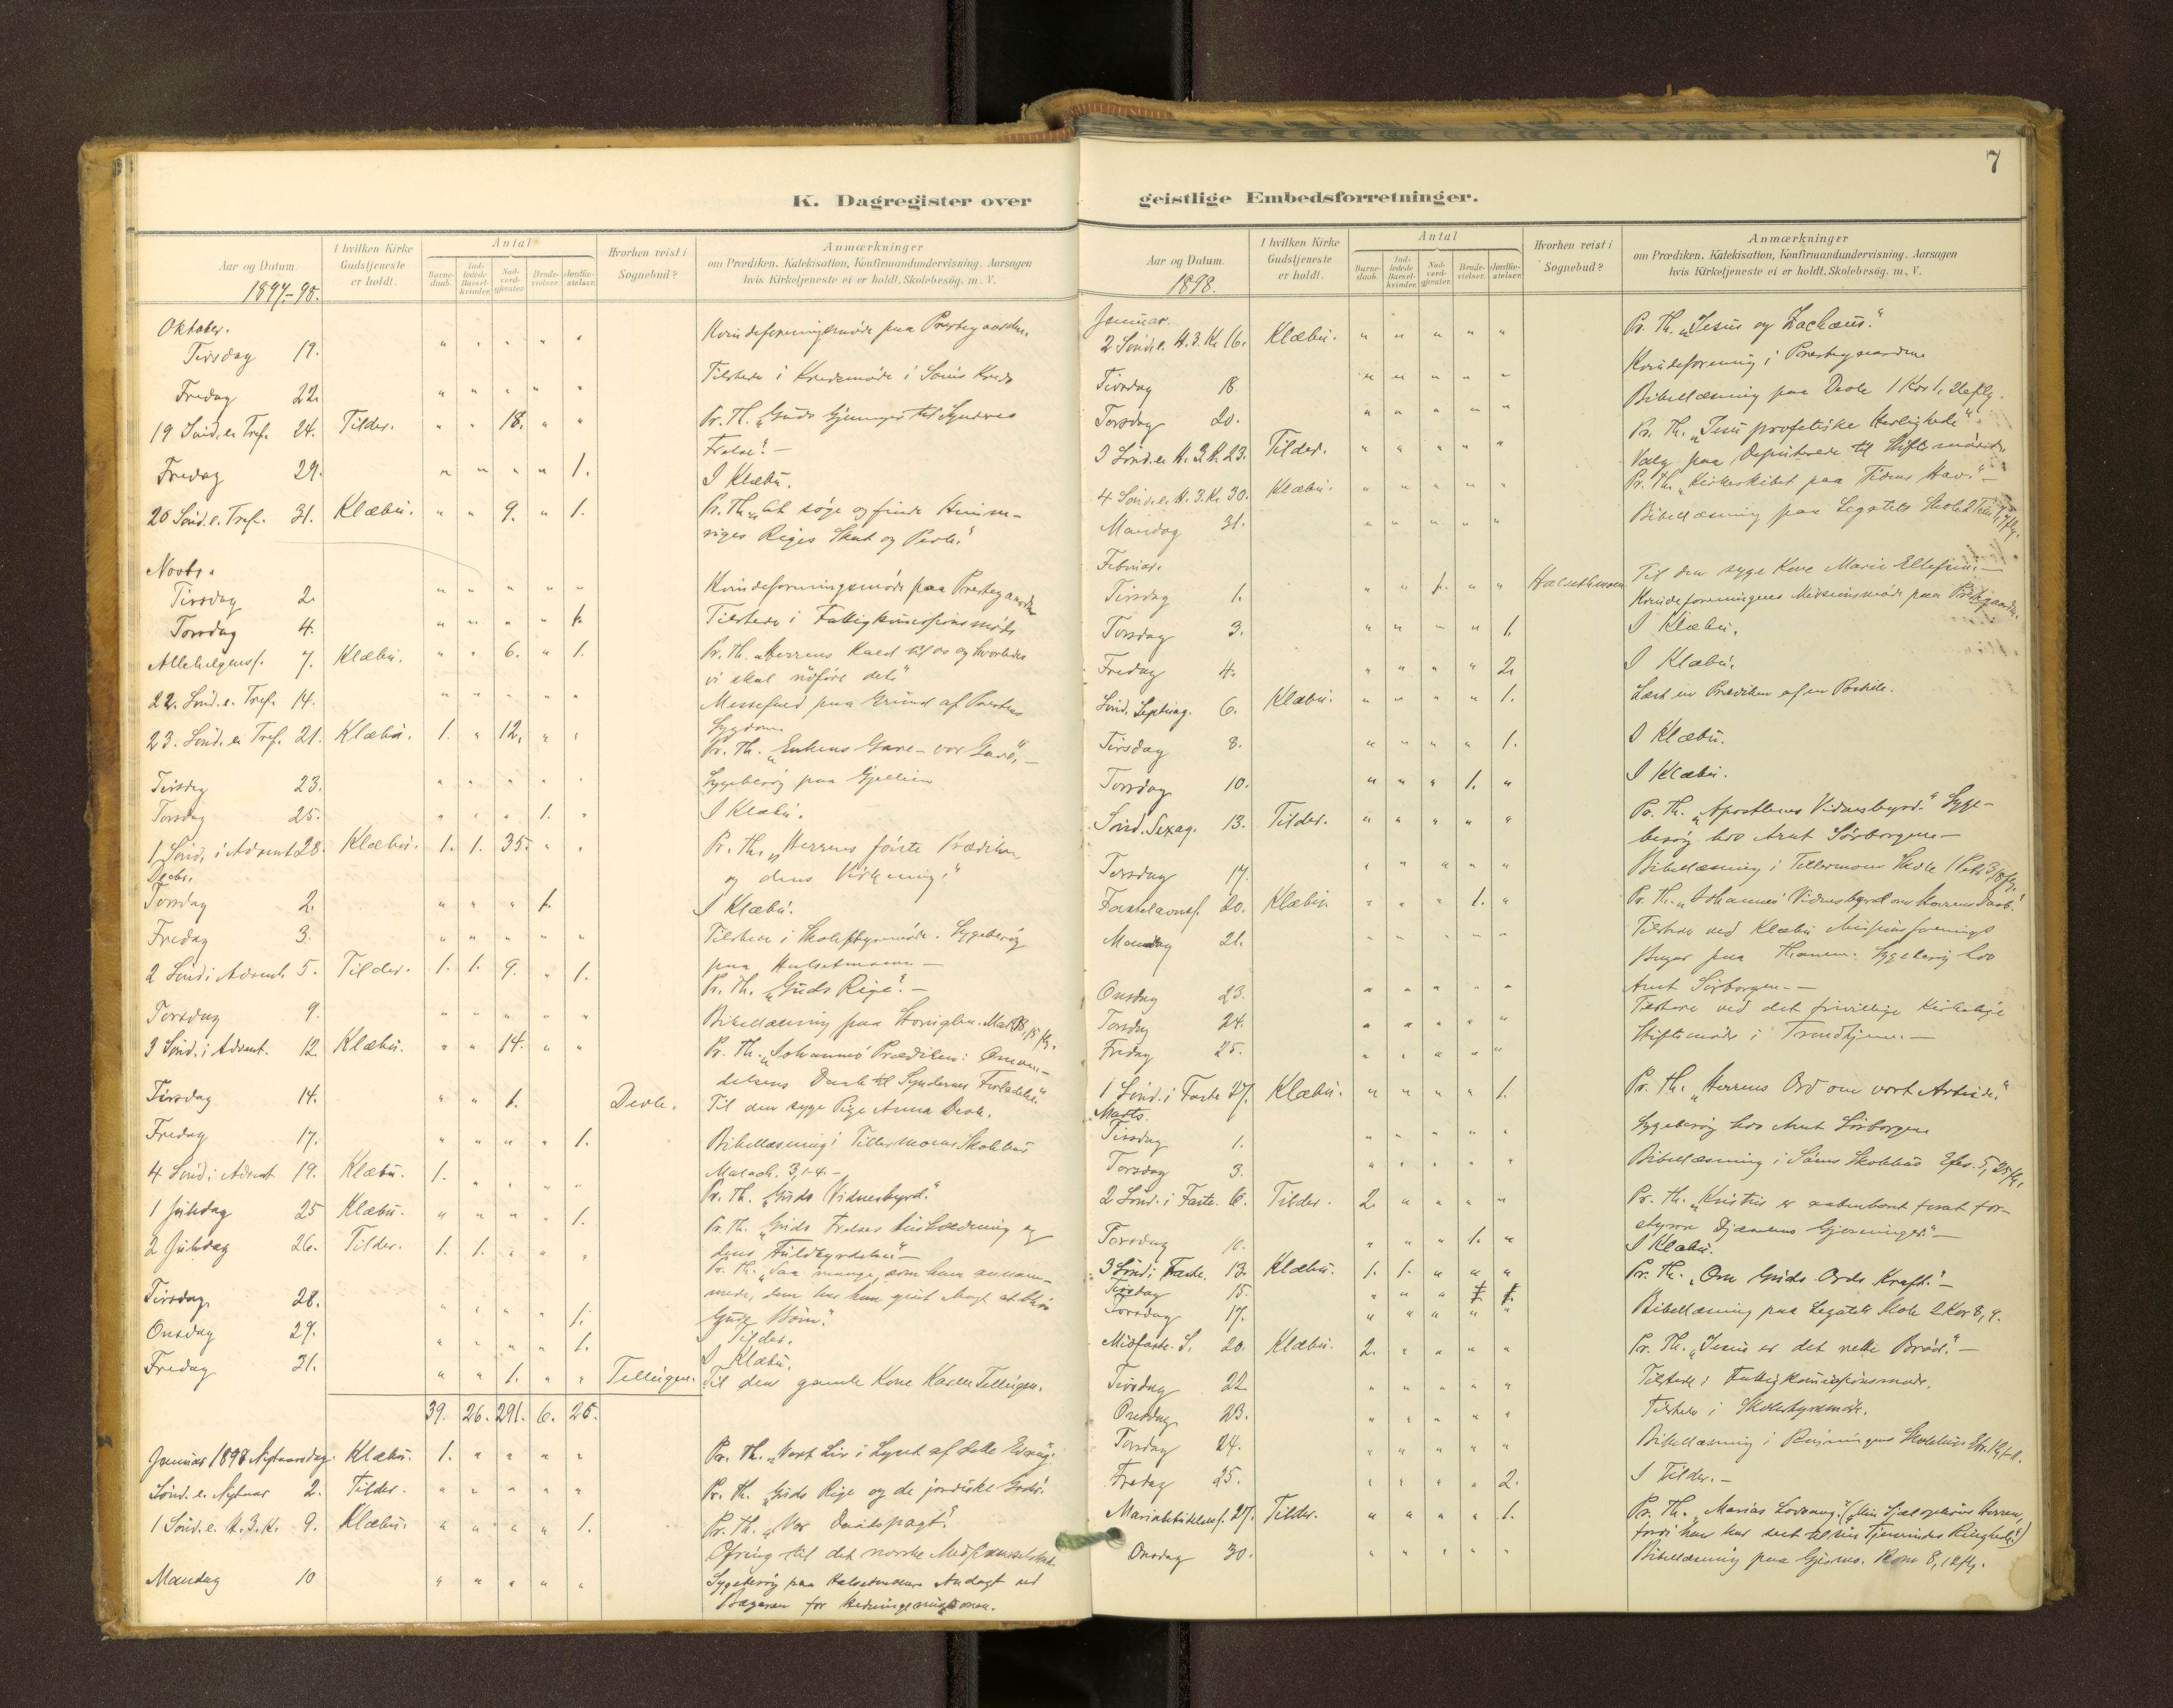 7
K. Dagregister over geistlige Embedsforretninger.
Aar og Datum.
1897-98.
I hvilken Kirke Gudstjeneste er holdt.
Antal
Barne-daab.
Ind-ledede Barsel-kvinder.
Nad-verd-gjæster.
Brude-vielser.
Jordfæ-stelser.
Hvorhen reist i Sognebud?
Anmærkninger
om Prædiken. Katekisation, Konfirmandundervisning. Aarsagen
hvis Kirketjeneste ei er holdt. Skolebesög. m. V.
Oktober.
Tirsdag 19. " " " " " Kvindeforeningsmöde paa Prestegaarden.
Fredag 22. " " " " " Tilstede i Kredsmöde i Sørus Kreds
19 Sönd. e. Tref. 24. Tilder. " " 18. " " Pr. Th. „Guds Gjerninger til Synderes
Frelse." -
Fredag 29. " " " " 1. I Klæbu.
20 Sönd. e. Tref. 31. Klæbu. " " 9. " 1. Pr. Th. „At söge og finde Himme-
riges Riges Skat og Perle."
Novbr.
Tirsdag 2. " " " " " Kvindeforeningsmöde paa Prestegaarden
Torsdag 4. " " " " 1. Tilstede i Fattigkomissionsmöde
Allehelgensf. 7. Klæbu. " " 6. " 1. Pr. Th. „Herrens Kald til os og hvorledes
vi skal udføre det."
22. Sönd. e. Tref. 14. " " " " " Messefald paa Grund af Prestens
Sygdom
23. Sönd. e. Tref. 21. Klæbu. 1. " 12. " " Pr. Th. „Enkens Gave - vor Gave." -
Tirsdag 23. " " " " " Sygebesög paa Gjellien
Torsdag 25. " " " 1. " I Klæbu.
1 Sönd. i Advent 28. Klæbu. 1. 1. 35. " " Pr. Th. „Herrens förste Prædiken
og dens Virkning."
Decbr.
Torsdag 2. " " " 1. I Klæbu.
Fredag 3. " " " " " Tilstede i Skolestyremöde. Sygebesög
paa Halsetmoen -
2 Sönd i Advent 5. Tilder. 1. 1. 9. " 1. Pr. Th. „Guds Rige." -
Torsdag 9. " " " " " Bibellæsning paa
3 Sönd. i Advent. 12. Klæbu. " " 14. " " Pr. Th. „Johannes' Prædiken: Omven-
delsens Daab til Syndernes Forladelse."
Tirsdag 14. " " 1. Devle. Til den syge Pige Anna Devle.
Fredag 17. " " " " 1. Bibellæsning i Tillermoens Skolehus
Malach. 3, 1-4 -
4 Sönd i Advent 19. Klæbu. 1. " " " " Pr. Th. „Guds Vidnesbyrd."
1 Juledag 25 Klæbu. " " " " 1. Pr. Th. „Guds Frelses og
dens Fuldbyrdelse" -
2 Juledag 26. Tilder. 1. 1. " " " Pr. Th. „Saa mange, som ham annam-
mede, dem har han givet Magt at blive
Guds Börn."
Tirsdag 28. " " " " 1. I Tilder.
Onsdag 29. " " " " 1. I Klæbu.
Fredag 31. " " 1. " " Tellugen. Til den gamle Kone Karen Tellugen.
39. 26. 291. 6. 25.
Januar 1898 Nytaarsdag. Klæbu. 1. " " " " Pr. Th. „Vort Liv i Lyset af dette Evang."
Sönd. e. Nytaar 2. Tilder. " " " " " Pr. Th. „Guds Rige og de jordiske Goder."
1 Sönd. e. H. 3. K. 9. Klæbu. " " " " 1. Pr. Th. „Vor Daabspagt."
Ofring til det norske Missionsselskab.
Mandag 10 " " " " " Sygebesög paa Halsetmoen. Andagt ved
Bazaren for Hedningemissionen.
Aar og Datum.
1898.
I hvilken Kirke Gudstjeneste er holdt.
Antal
Barne-daab.
Ind-ledede Barsel-kvinder.
Nad-verd-gjæster.
Brude-vielser.
Jordfæ-stelser.
Hvorhen reist i Sognebud?
Anmærkninger
om Prædiken. Katekisation, Konfirmandundervisning. Aarsagen
hvis Kirketjeneste ei er holdt. Skolebesög. m. V.
Januar.
2 Sönd. e. H. 3. K. 16. Klæbu. " " " " " Pr. Th. „Jesus og Zachæus."
Tirsdag 18 " " " " " Kvindeforening i Prestegaarden
Torsdag 20. " " " " " Bibellæsning paa Devle 1 Kor 1, 26 flg.
3 Sönd. e. H. 3. K. 23. Tilder. " " " " " Pr. Th. „Jesu profetiske Herlighed."
Valg paa Deputerede til Stiftsmödet.
4 Sönd. e. H. 3. K. 30. Klæbu. " " " " " Pr. Th. „Kirkeskibet paa Tidens Hav." -
Mandag 31. " " " " " Bibellæsning paa Legatets Skole
Februar.
Tirsdag 1. " " 1. " " Halsetmoen Til den syge Kone Marie Ellefsen. -
Kvindeforeningens Missionsmöde paa Prestegaarden.
Torsdag 3. " " " " 1. I Klæbu.
Fredag 4. " " " " 2. I Klæbu.
Sönd. Septuag. 6. Klæbu. " " " " 1. Læst en Prædiken af en Postille.
Tirsdag 8. " " " " 1. I Klæbu.
Torsdag 10. " " " 1. " I Klæbu.
Sönd. Sexag. 13. Tilder. " " " " " Pr. Th. „Apostlenes Vidnesbyrd." Syge-
besög hos Arnt Sörborgen -
Torsdag 17. " " " " " Bibellæsning i Tillermoen Skole
Fastelavnsf. 20. Klæbu. " " " 1. " Pr. Th. „Johannes' Vidnesbyrd om Herrens Daab."
Mandag 21. " " " " " Tilstede ved Klæbu Missionsforenings
Bazar paa Sygebesög hos
Arnt Sörborgen. -
Onsdag 23. " " " " "
Torsdag 24. " " " " " Tilstede ved det frivillige kirkelige
Fredag 25. " " " " " Stiftsmöde i Trondhjem. -
1 Sönd. i Faste 27. Klæbu. " " " " 1. Pr. Th. „Herrens Ord om vort Arbeide."
Marts.
Tirsdag 1. " " " " " Sygebesög hos Arnt Sörborgen
Torsdag 3. " " " " " Bibellæsning i Sørus Skolehus Efes. 5, 25 flg.
2 Sönd. i Faste. 6. Tilder. 2. " " " " Pr. Th. „Kristus er aabenbaret forat for-
styrre Djævelens Gjerninger." -
Torsdag 10. " " " 1. " I Klæbu.
3 Sönd i Faste. 13. Klæbu. 1. 1. " " " Pr. Th. „Om Guds Ords Kraft." -
Tirsdag 15. " " "
Torsdag 17. " " " " " Bibellæsning paa Legatets Skole 2 Kor 8, 9.
Midfaste. S. 20. Klæbu. 2. " " " " Pr. Th. „Jesus er det rette Bröd." -
Tirsdag 22 " " " " " Tilstede i Fattigkomissionsmöde.
Onsdag 23. " " " " " Tilstede i Skolestyremöde.
Torsdag 24. " " " " " Bibellæsning i Skolehus
Fredag 25. " " " " 2. I Tilder. -
Mariabebudelsesf. 27. Tilder. " " " " 1. Pr. Th. „Marias Lovsang." („Min Sjæl ophöier Herren,
fordi han har seet til sin Tjenerindes Ringhed.")
Onsdag 30. " " " " " Bibellæsning paa Gjesmo. Rom 8, 12 flg.